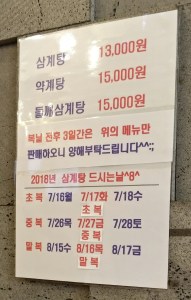 삼계탕 13,000원
약계탕 15,000원
들깨삼계탕 15,000원
복날 전후 3일간은 위의 메뉴만
판매하오니 양해부탁드립니다^^;;
2018년 삼계탕 드시는날^8^
초 복 7/16월 7/17화 7/18수
초 복
중 복 7/26목 7/27금 7/28토
중 복
말 복 8/15수 8/16목 8/17금
말 복